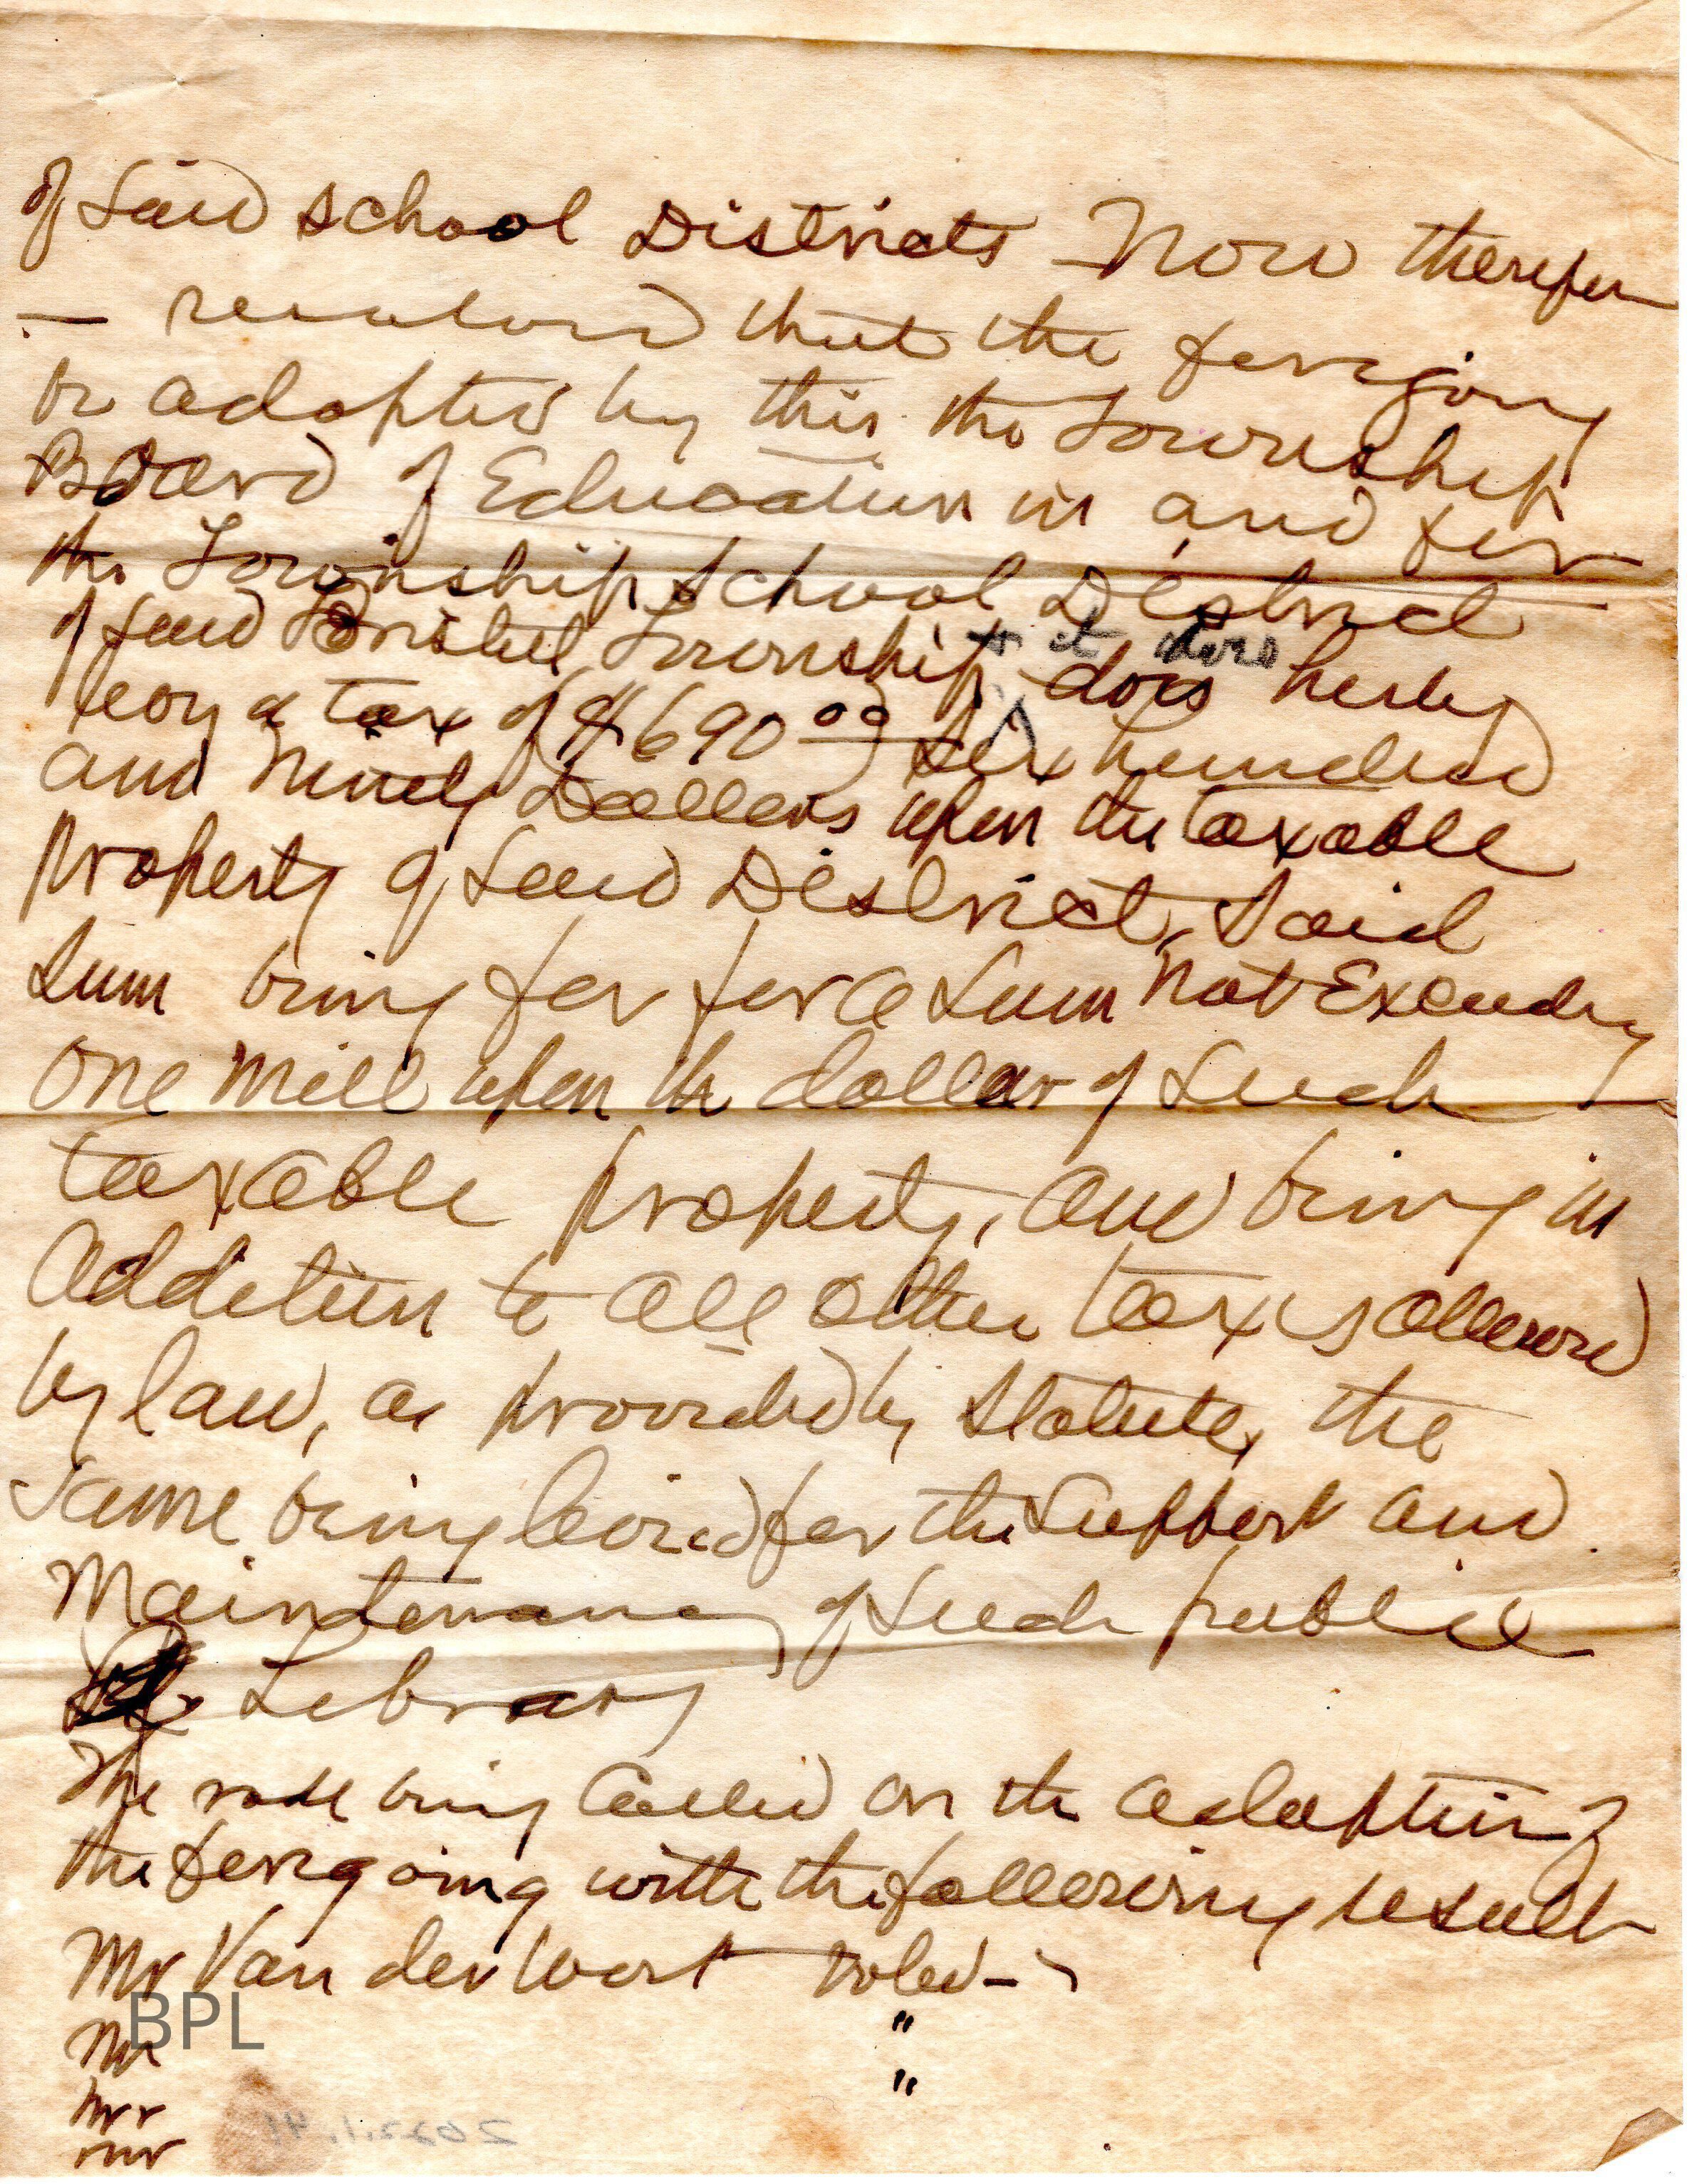 of said school Districts Now therefore
— resolved that the foregoing
be adopted by this the Township
Board of Education in and for
the Township School District
& it does
of said Bristol Township does hereby
levy a tax of ($690.00) six hundred
and Ninety Dollars upon the taxable
property of said District, said
sum being for a sum not Exceeding
one mill upon the dollar of such
taxable property, and being in
addition to all other taxes allowed
by law, as provided by statute, the
same being levied for the support and
Maintenance of such public
Library
The vote being called on the adoption of
the foregoing with the following result
Mr Van der Wort voted -
Mr "
Mr "
Mr
BPL
2022.1.41